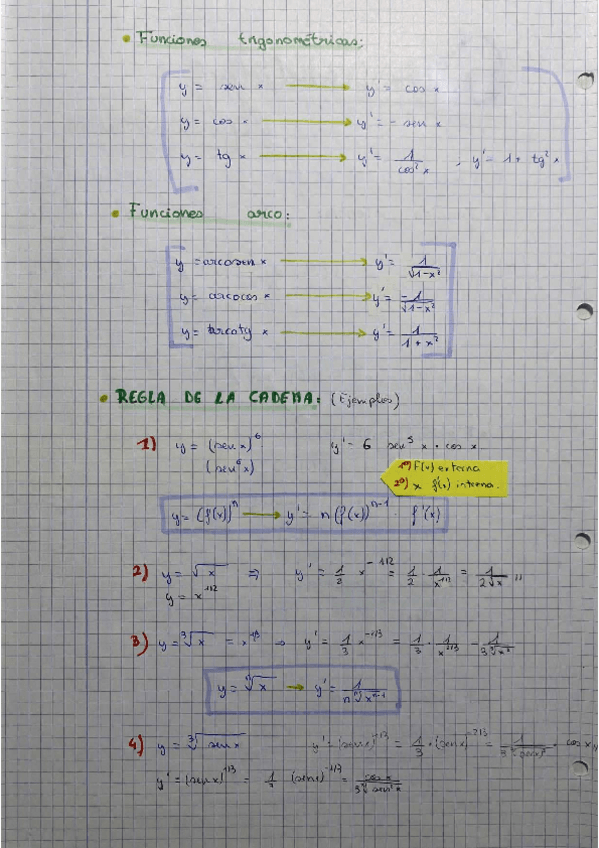 • Funciones trigonométricas:
y = sen x → y' = cos x
y = cos x → y' = - sen x
y = tg x → y' = 1/cos² x , y' = 1 + tg² x
• Funciones arco:
y = arcosen x → y' = 1/√(1-x²)
y = arcocos x → y' = -1/√(1-x²)
y = arcotg x → y' = 1/(1+x²)
• REGLA DE LA CADENA: (Ejemplos)
1) y = (sen x)⁶ y' = 6 sen⁵ x · cos x
(sen⁶ x)
1º) F(x) externa
2º) x f'(x) interna.
y = (f(x))ⁿ → y' = n (f(x))ⁿ⁻¹ · f'(x)
2) y = √x ⇒ y' = 1/2 x^-1/2 = 1/2 · 1/x^1/2 = 1/(2√x) //
y = x^1/2
3) y = ³√x = x^1/3 → y' = 1/3 x^-2/3 = 1/3 · 1/x^2/3 = 1/(3 ³√x²)
y = ⁿ√x → y' = 1/(n ⁿ√xⁿ⁻¹)
4) y = ³√(sen x) y' = (sen x)^1/3 = 1/3 · (sen x)^-2/3 = 1/(3 ³√(sen x)²) · cos x //
y' = (sen x)^1/3 = (sen x)^-2/3 = cos x/(3 ³√sen² x)